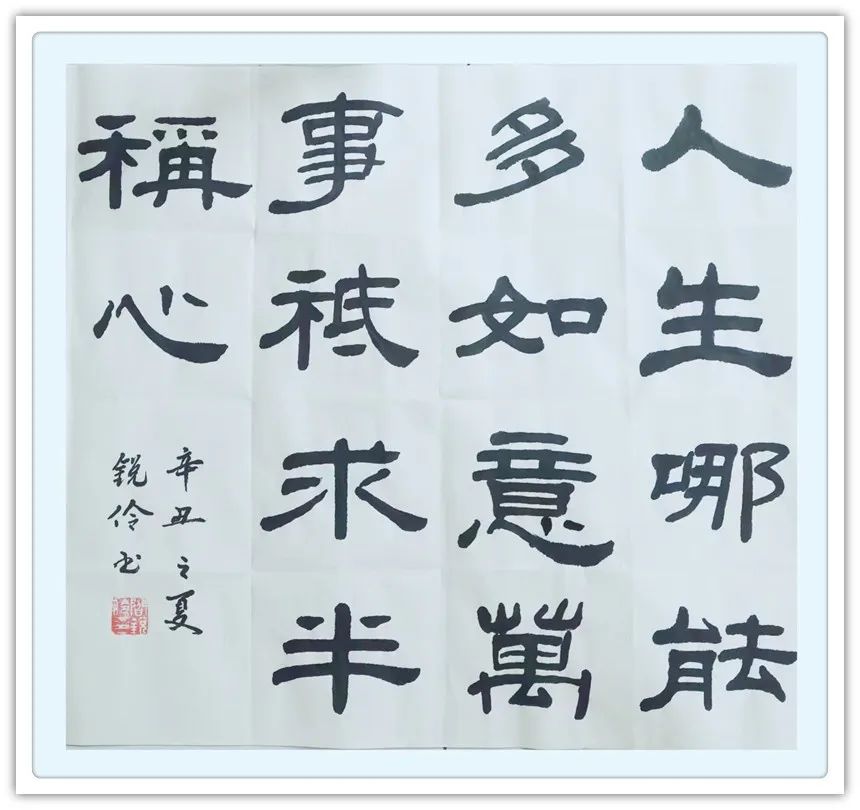 人生哪能
多如意萬
事祗求半
稱心
辛丑之夏
銳伶书